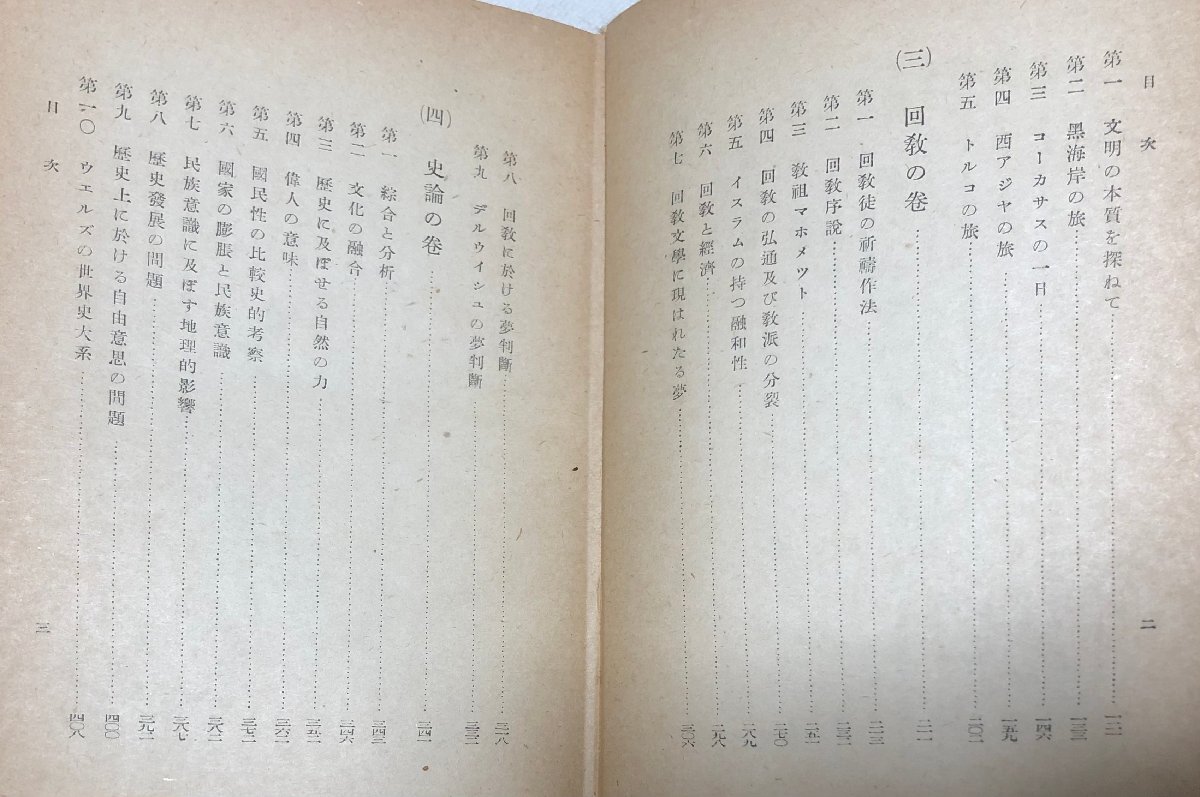 目次
第一 文明の本質を探ねて
第二 黑海岸の旅 一三三
第三 コーカサスの一日 一四六
第四 西アジヤの旅 一五九
第五 トルコの旅 二〇一
(三) 回教の卷 二一一
第一 回教徒の祈禱作法 二一三
第二 回教序說 二三二
第三 教祖マホメツト 二五一
第四 回教の弘通及び教派の分裂 二七〇
第五 イスラムの持つ融和性 二八九
第六 回教と經濟 二九八
第七 回教文學に現はれたる夢 三〇六
二
第八 回教に於ける夢判斷 三一八
第九 デルウイシュの夢判斷 三三二
(四) 史論の卷 三四一
第一 綜合と分析 三四三
第二 文化の融合 三四六
第三 歷史に及ぼせる自然の力 三五二
第四 偉人の意味 三六二
第五 國民性の比較史的考察 三七二
第六 國家の膨脹と民族意識 三八二
第七 民族意識に及ぼす地理的影響 三八七
第八 歷史發展の問題 三九二
第九 歷史上に於ける自由意思の問題 四〇〇
第一〇 ウエルズの世界史大系 四〇八
目次
三